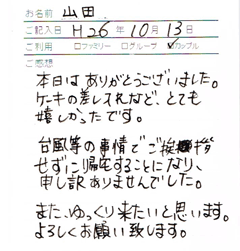 お名前 山田
ご記入日 H26年10月13日
ご利用 □ファミリー □グループ ☑カップル
ご感想
本日はありがとうございました。
ケーキの差し入れなど、とても
嬉しかったです。
台風等の事情でご挨拶
せずに帰宅することになり、
申し訳ありませんでした。
また、ゆっくり来たいと思います。
よろしくお願い致します。